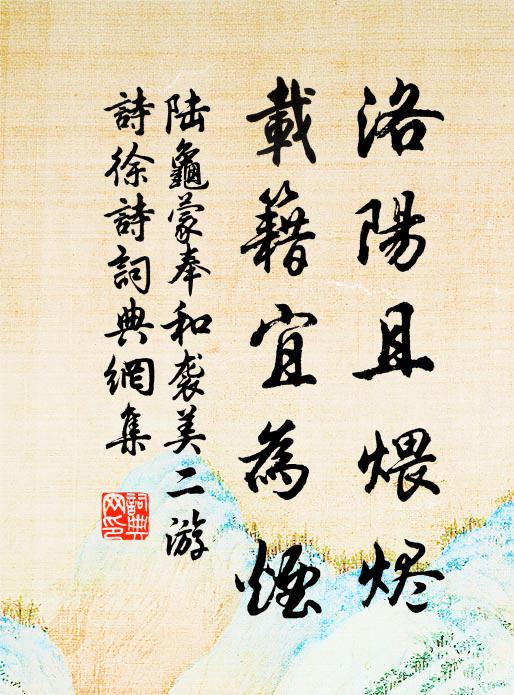 洛陽且煨烬
載籍宜為煙
陆龜蒙奉和袭美二游
詩徐詩詞典網集
詞典网印